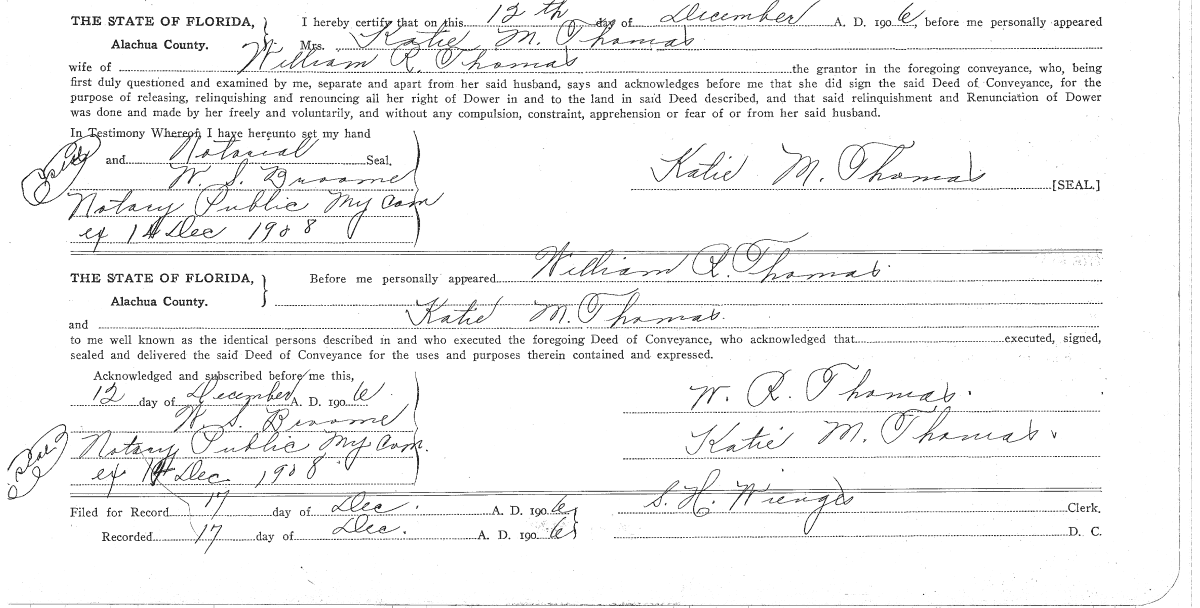 THE STATE OF FLORIDA, } I hereby certify that on this 12th day of December A. D. 1906, before me personally appeared
Alachua County. Mrs. Katie M. Thomas
wife of William R. Thomas the grantor in the foregoing conveyance, who, being
first duly questioned and examined by me, separate and apart from her said husband, says and acknowledges before me that she did sign the said Deed of Conveyance, for the
purpose of releasing, relinquishing and renouncing all her right of Dower in and to the land in said Deed described, and that said relinquishment and Renunciation of Dower
was done and made by her freely and voluntarily, and without any compulsion, constraint, apprehension or fear of or from her said husband.
In Testimony Whereof I have hereunto set my hand
and Notarial Seal.
W. S. Broome
Katie M. Thomas [SEAL.]
Notary Public My Com
ex 14 Dec 1908
THE STATE OF FLORIDA, } Before me personally appeared William R. Thomas
Alachua County.
and Katie M. Thomas.
to me well known as the identical persons described in and who executed the foregoing Deed of Conveyance, who acknowledged that executed, signed,
sealed and delivered the said Deed of Conveyance for the uses and purposes therein contained and expressed.
Acknowledged and subscribed before me this,
12 day of December A. D. 1906
W. R. Thomas.
W. S. Broome
Katie M. Thomas.
Notary Public My Com.
Seal
ex 14 Dec 1908
Filed for Record 17 day of Dec. A. D. 1906 } S. H. Wienges Clerk.
Recorded 17 day of Dec. A. D. 1906 D. C.